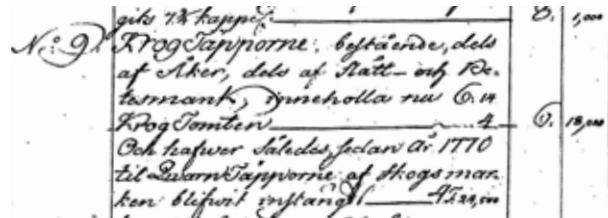 gits 7¾ kappe. 8. 1,000
No: 9. KrogTäpporne, bestående, dels
af Åker, dels af Slått- och Be-
tesmark, innehålla nu 6.14
KrogTomten 4 6. 18,000
Och hafwer således, sedan År 1770
til QwarnTäpporne af skogsmar-
ken blifwit instängt